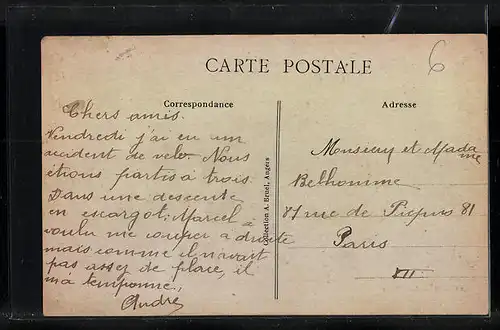 CARTE POSTALE
6
Correspondance
Chers amis.
Vendredi j'ai eu un
accident de velo. Nous
étions partis à trois.
Dans une descente
en escargot. Marcel a
voulu me couper à droite
mais comme il n'avait
pas assez de place, il
m'a tamponné,
André
Collection A. Bruel, Angers
Adresse
Monsieur et Madame
Belhomme
81 rue de Picpus 81
Paris
XII